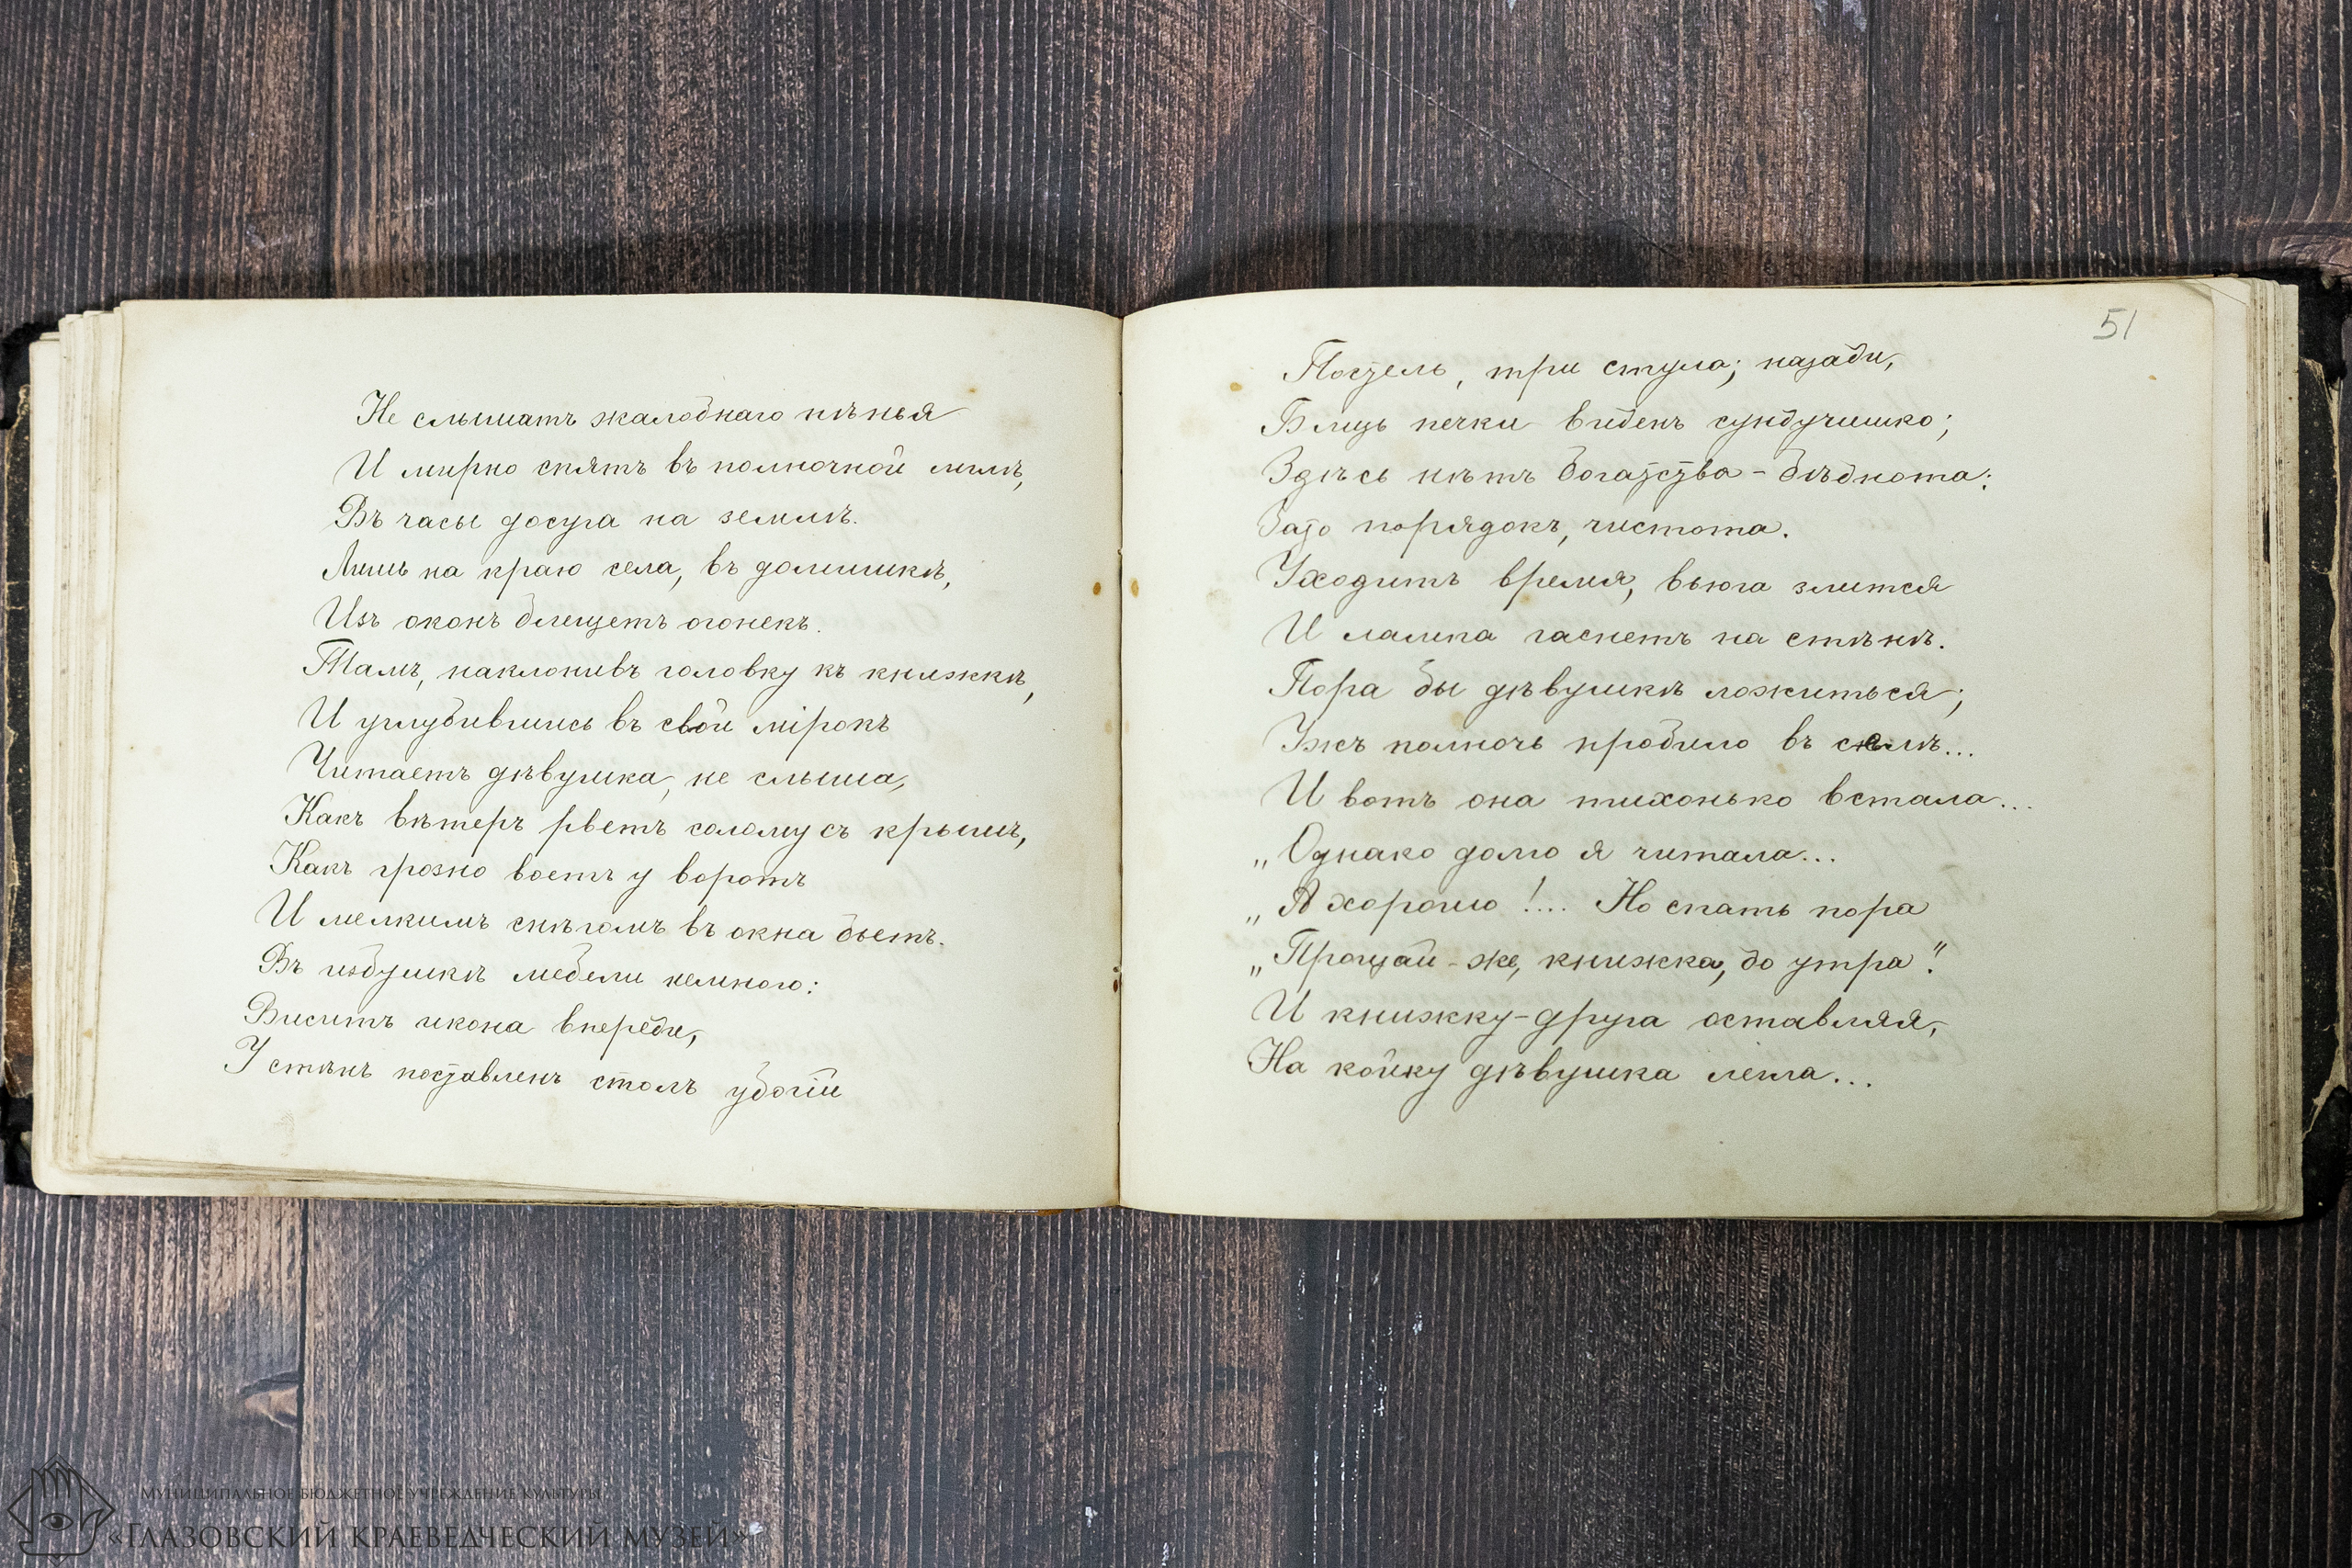 Не слышатъ жалобнаго пѣнья
И мирно спятъ въ полночной мглѣ,
Въ часы досуга на землѣ.
Лишь на краю села, въ домишкѣ,
Изъ оконъ блещетъ огонекъ.
Тамъ, наклонивъ головку къ книжкѣ,
И углубившись въ свой мірокъ
Читаетъ дѣвушка, не слыша,
Какъ вѣтеръ рветъ солому съ крыши,
Какъ грозно воетъ у воротъ
И мелкимъ снѣгомъ въ окна бьетъ.
Въ избушкѣ мебели немного:
Виситъ икона впереди,
У стѣнъ поставленъ столъ убогій
51
Постель, три стула; назади,
Близь печки виденъ сундучишко;
Здѣсь нѣтъ богатства - бѣднота:
Зато порядокъ, чистота.
Уходитъ время, вьюга злится
И лампа гаснетъ на стѣнѣ.
Пора бы дѣвушкѣ ложиться;
Ужъ полночь пробило въ селѣ...
И вотъ она тихонько встала...
„Однако долго я читала...
„А хорошо!.... Но спать пора
„Прощай-же, книжка, до утра".
И книжку-друга оставляя,
На койку дѣвушка легла...
МУНИЦИПАЛЬНОЕ БЮДЖЕТНОЕ УЧРЕЖДЕНИЕ КУЛЬТУРЫ
«ГЛАЗОВСКИЙ КРАЕВЕДЧЕСКИЙ МУЗЕЙ»